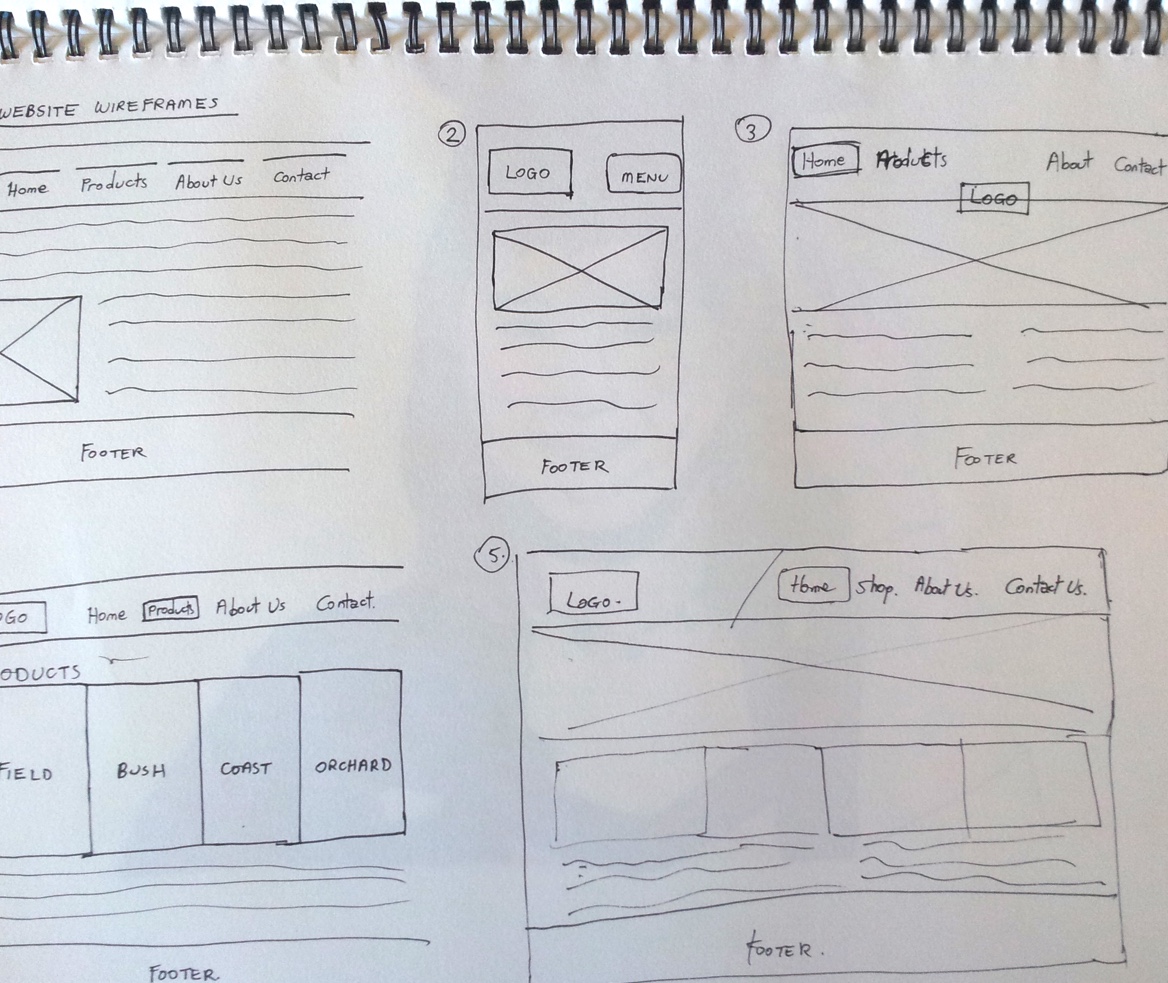 WEBSITE WIREFRAMES
Home Products About Us Contact
FOOTER
2
LOGO MENU
FOOTER
3
Home Products About Contact
LOGO
FOOTER
OGO Home Products About Us Contact.
ODUCTS
FIELD BUSH COAST ORCHARD
FOOTER
5.
LOGO. Home Shop. About Us. Contact Us.
FOOTER.